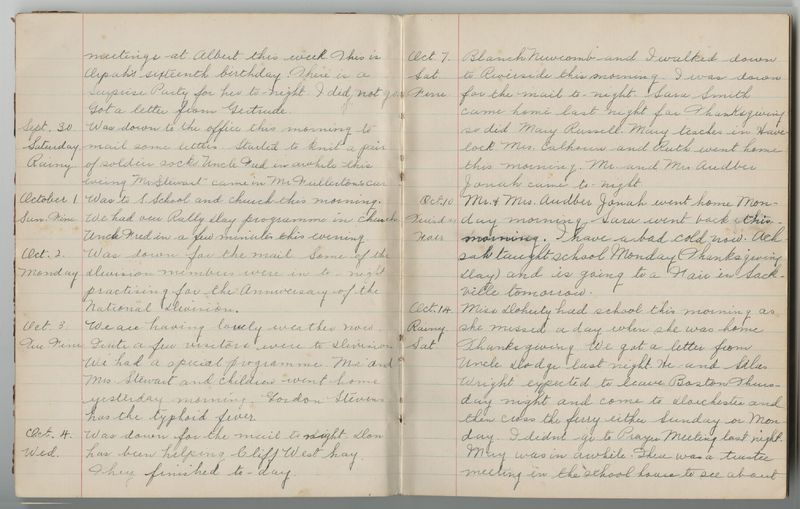 meetings at Albert this week. This is
Orpah's sixteenth birthday. There is a
Surprise Party for her to-night. I did not go.
Got a letter from Gertrude.
Sept. 30 Was down to the office this morning to
Saturday mail some letters. Started to knit a pair
Rainy of soldier socks. Uncle Fred in awhile this
evening. Mr Stewart came in Mr Fullerton's car
October 1 Was to S. School and church this morning.
Sun. Fine We had our Rally Day programme in Church.
Uncle Fred in a few minutes this evening
Oct. 2. Was down for the mail. Some of the
Monday division members were in to-night
practising for the Anniversary of the
National Division.
Oct. 3. We are having lovely weather now.
Tue Fine Quite a few visitors were to Division
We had a special programme. Mr and
Mrs. Stewart and children went home
yesterday morning. Gordon Stevens
has the typhoid fever.
Oct. 4. Was down for the mail to night. Don
Wed. has been helping Cliff West hay.
They finished to-day.
Oct 7. Blanch Newcomb and I walked down
Sat to Riverside this morning. I was down
Fine for the mail to-night. Sara Smith
came home last night for Thanksgiving
so did Mary Russell. Mary teaches in Have
lock. Mrs. Calhoun and Ruth went home
this morning. Mr. and Mrs Audber
Jonah came to-night
Oct. 10 Mr. & Mrs. Audber Jonah went home Mon-
day morning. Sara went back this
Fair morning. I have a bad cold now.
taught school Monday (Thanksgiving
Day) and is going to a Fair in Sack-
ville tomorrow.
Oct. 14. Miss Doherty had school this morning as
Rainy she missed a day when she was home
Sat Thanksgiving. We got a letter from
Uncle Dodge last night. He and Silas
Wright expected to leave Boston Thurs-
day night and come to Dorchester and
then cross the ferry either Sunday or Mon-
day. I didn't go to Prayer Meeting last night.
Mary was in awhile. There was a trustee
meeting in the school house to see about